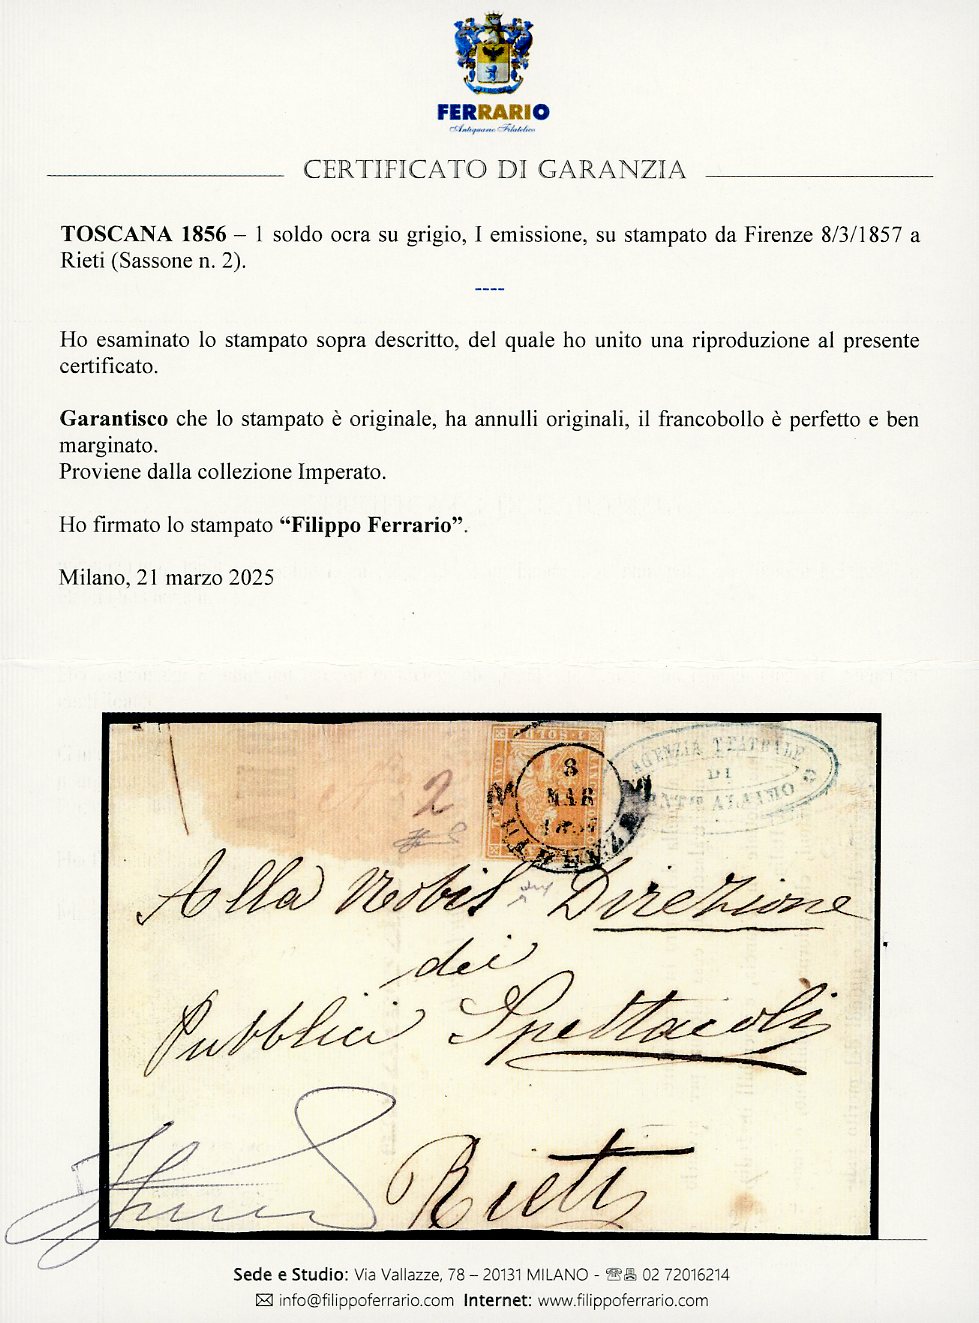 FERRARIO
Antiquario Filatelico
CERTIFICATO DI GARANZIA
TOSCANA 1856 – 1 soldo ocra su grigio, I emissione, su stampato da Firenze 8/3/1857 a
Rieti (Sassone n. 2).
----
Ho esaminato lo stampato sopra descritto, del quale ho unito una riproduzione al presente
certificato.
Garantisco che lo stampato è originale, ha annulli originali, il francobollo è perfetto e ben
marginato.
Proviene dalla collezione Imperato.
Ho firmato lo stampato “Filippo Ferrario”.
Milano, 21 marzo 2025
8
MAR
1857
FIRENZE
AGENZIA TEATRALE
DI
ALAIMO
2
Alla Nobil Direzione
dei
Pubblici Spettacoli
Rieti
Sede e Studio: Via Vallazze, 78 – 20131 MILANO - 02 72016214
info@filippoferrario.com Internet: www.filippoferrario.com